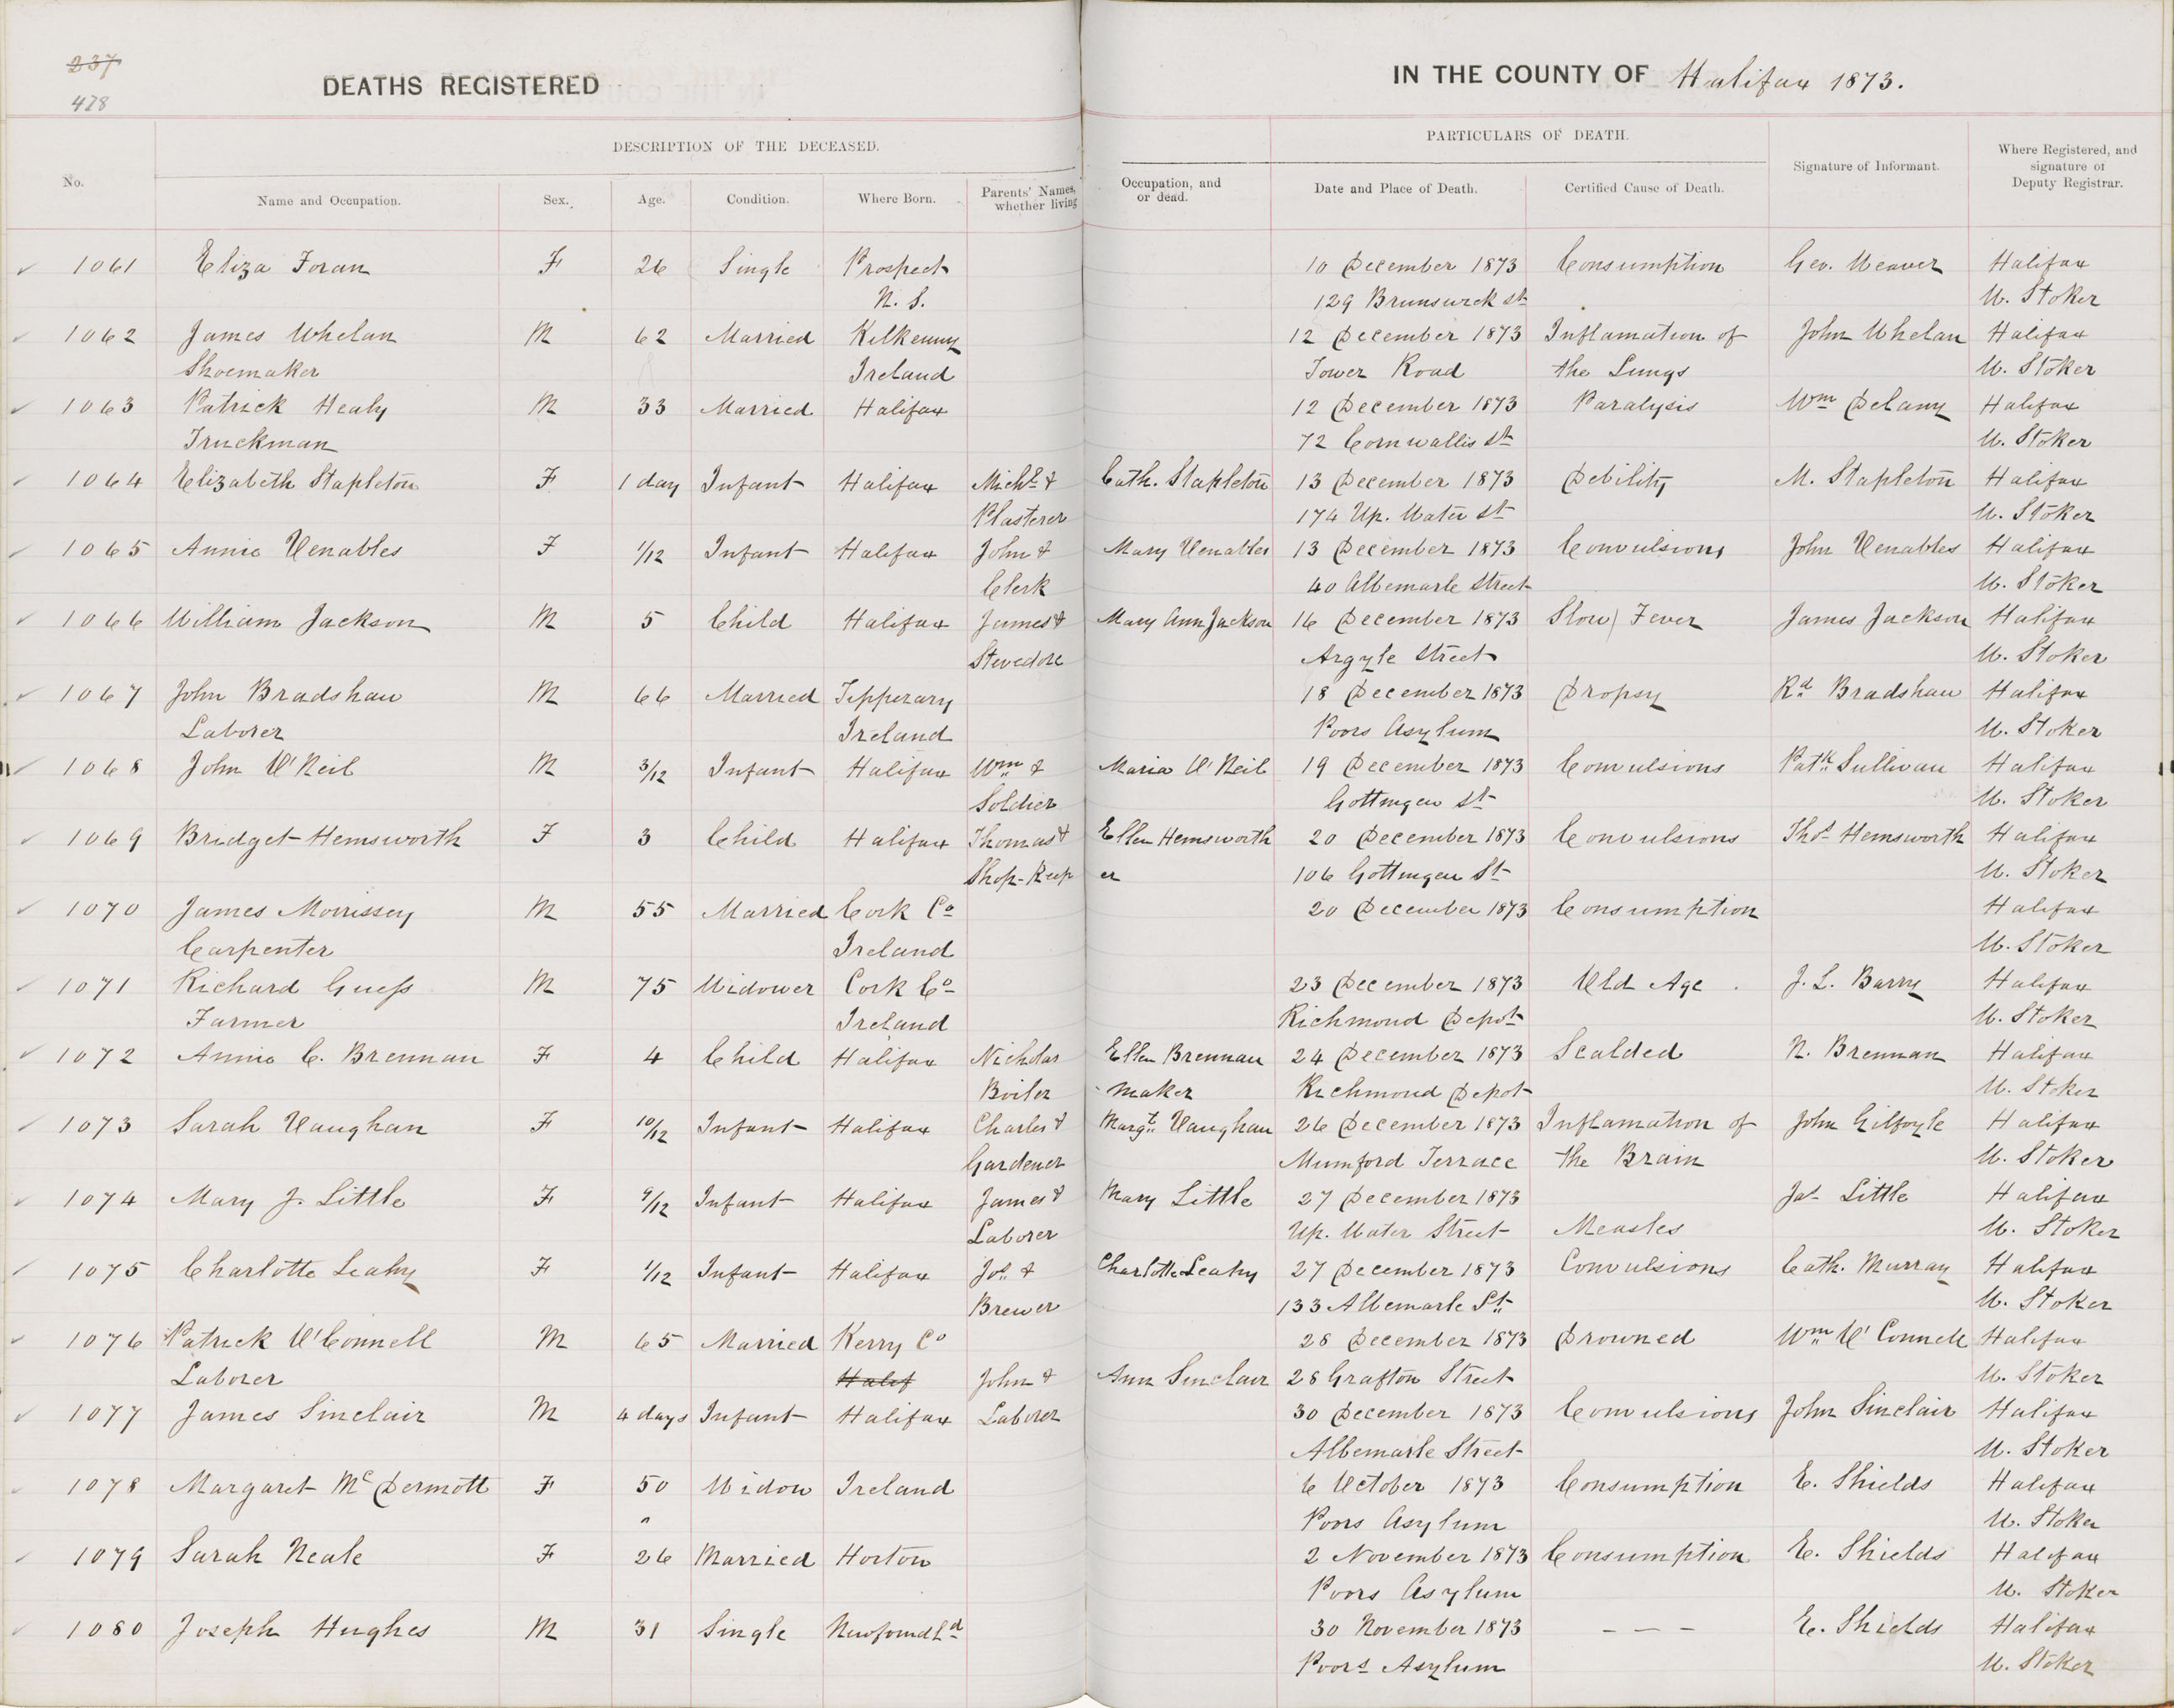 237
478
DEATHS REGISTERED IN THE COUNTY OF Halifax 1873.
DESCRIPTION OF THE DECEASED. PARTICULARS OF DEATH.
No. Name and Occupation. Sex. Age. Condition. Where Born. Parents' Names, whether living Occupation, and or dead. Date and Place of Death. Certified Cause of Death. Signature of Informant. Where Registered, and signature of Deputy Registrar.
1061 Eliza Foran F 26 Single Prospect 10 December 1873 Consumption Geo. Weaver Halifax
N. S. 129 Brunswick st W. Stoker
1062 James Whelan M 62 Married Kilkenny 12 December 1873 Inflamation of John Whelan Halifax
Shoemaker Ireland Tower Road the Lungs W. Stoker
1063 Patrick Healy M 33 Married Halifax 12 December 1873 Paralysis Wm Delany Halifax
Truckman 72 Cornwallis st W. Stoker
1064 Elizabeth Stapleton F 1 day Infant Halifax Michl & Cath. Stapleton 13 December 1873 Debility M. Stapleton Halifax
Plasterer 174 Up. Water st W. Stoker
1065 Annie Venables F 1/12 Infant Halifax John & Mary Venables 13 December 1873 Convulsions John Venables Halifax
Clerk 40 Albemarle street W. Stoker
1066 William Jackson M 5 Child Halifax James & Mary Ann Jackson 16 December 1873 Slow Fever James Jackson Halifax
Stevedore Argyle street W. Stoker
1067 John Bradshaw M 66 Married Tipperary 18 December 1873 Dropsy Rd Bradshaw Halifax
Laborer Ireland Poors Asylum W. Stoker
1068 John O'Neil M 3/12 Infant Halifax Wm & Maria O'Neil 19 December 1873 Convulsions Patk Sullivan Halifax
Soldier Gottingen st W. Stoker
1069 Bridget Hemsworth F 3 Child Halifax Thomas & Ellen Hemsworth 20 December 1873 Convulsions Thos Hemsworth Halifax
Shop-Keep er 106 Gottingen St W. Stoker
1070 James Morrissey M 55 Married Cork Co 20 December 1873 Consumption Halifax
Carpenter Ireland W. Stoker
1071 Richard Guess M 75 Widower Cork Co 23 December 1873 Old Age J. L. Barry Halifax
Farmer Ireland Richmond Depot W. Stoker
1072 Annie C. Brennan F 4 Child Halifax Nicholas Ellen Brennan 24 December 1873 Scalded N. Brennan Halifax
Boiler - maker Richmond Depot W. Stoker
1073 Sarah Vaughan F 10/12 Infant Halifax Charles & Margt Vaughan 26 December 1873 Inflamation of John Gilfoyle Halifax
Gardener Mumford Terrace the Brain W. Stoker
1074 Mary J. Little F 9/12 Infant Halifax James & Mary Little 27 December 1873 Jas Little Halifax
Laborer Up. Water Street Measles W. Stoker
1075 Charlotte Leahy F 1/12 Infant Halifax Jos & Charlotte Leahy 27 December 1873 Convulsions Cath. Murray Halifax
Brewer 133 Albemarle St. W. Stoker
1076 Patrick O'Connell M 65 Married Kerry Co 28 December 1873 Drowned Wm O'Connell Halifax
Laborer Halif John & Ann Sinclair 28 Grafton Street W. Stoker
1077 James Sinclair M 4 days Infant Halifax Laborer 30 December 1873 Convulsions John Sinclair Halifax
Albemarle Street W. Stoker
1078 Margaret McDermott F 50 Widow Ireland 6 October 1873 Consumption E. Shields Halifax
Poors Asylum W. Stoker
1079 Sarah Neale F 26 Married Horton 2 November 1873 Consumption E. Shields Halifax
Poors Asylum W. Stoker
1080 Joseph Hughes M 31 Single Newfoundld 30 November 1873 - - - E. Shields Halifax
Poors Asylum W. Stoker